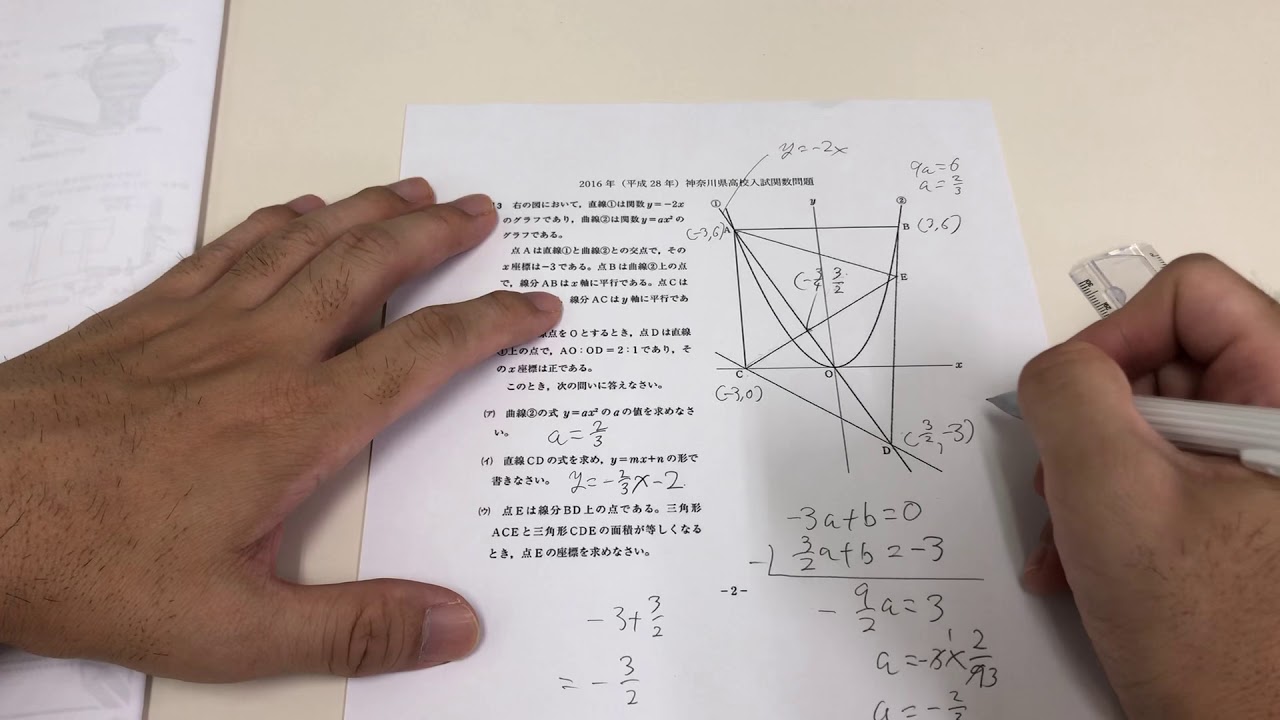 y=-2x
9a=6
a=2/3
2016年（平成28年）神奈川県高校入試関数問題
3 右の図において，直線①は関数y=-2x
のグラフであり，曲線②は関数y=ax²の
グラフである。
点Aは直線①と曲線②との交点で，その
x座標は-3である。点Bは曲線②上の点
で，線分ABはx軸に平行である。点Cは
線分ACはy軸に平行であ
点をOとするとき，点Dは直線
上の点で，AO：OD＝2：1であり，そ
のx座標は正である。
このとき，次の問いに答えなさい。
(ア) 曲線②の式 y=ax²のaの値を求めなさ
い。 a=2/3
(イ) 直線CDの式を求め，y=mx+nの形で
書きなさい。 y=-2/3x-2
(ウ) 点Eは線分BD上の点である。三角形
ACEと三角形CDEの面積が等しくなる
とき，点Eの座標を求めなさい。
-2-
-3+3/2
=-3/2
① y ②
(-3,6) A B (3,6)
(-3/4 3/2) E
C O x
(-3,0)
D (3/2,-3)
-3a+b=0
-) 3/2a+b=-3
-9/2a=3